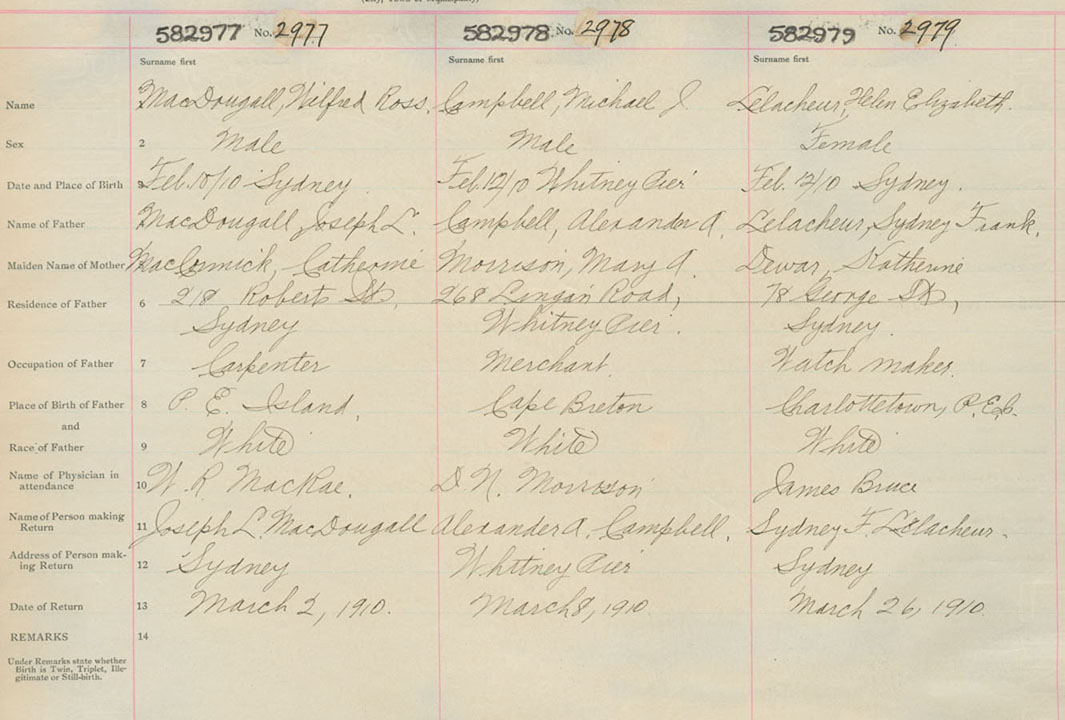 582977 No. 2977 582978 No. 2978 582979 No. 2979
Surname first Surname first Surname first
Name MacDougall, Wilfred Ross. Campbell, Michael J. Lelacheur, Helen Elizabeth.
Sex 2 Male Male Female
Date and Place of Birth Feb. 10/10 Sydney. Feb. 12/10 Whitney Pier Feb. 12/10 Sydney.
Name of Father MacDougall, Joseph L. Campbell, Alexander A. Lelacheur, Sydney Frank.
Maiden Name of Mother MacCormick, Catherine Morrison, Mary A. Dewar, Katherine
Residence of Father 6 218 Roberts St., 268 Lingan Road, 78 George St.,
Sydney Whitney Pier. Sydney.
Occupation of Father 7 Carpenter Merchant. Watch maker.
Place of Birth of Father 8 P. E. Island, Cape Breton Charlottetown, P.E.I.
and
Race of Father 9 White White White
Name of Physician in
attendance 10 W. R. MacRae. D. N. Morrison James Bruce
Name of Person making
Return 11 Joseph L. MacDougall Alexander A. Campbell. Sydney F. Lelacheur.
Address of Person mak-
ing Return 12 Sydney Whitney Pier Sydney
Date of Return 13 March 2, 1910. March 8, 1910 March 26, 1910
REMARKS 14
Under Remarks state whether
Birth is Twin, Triplet, Ille-
gitimate or Still-birth.